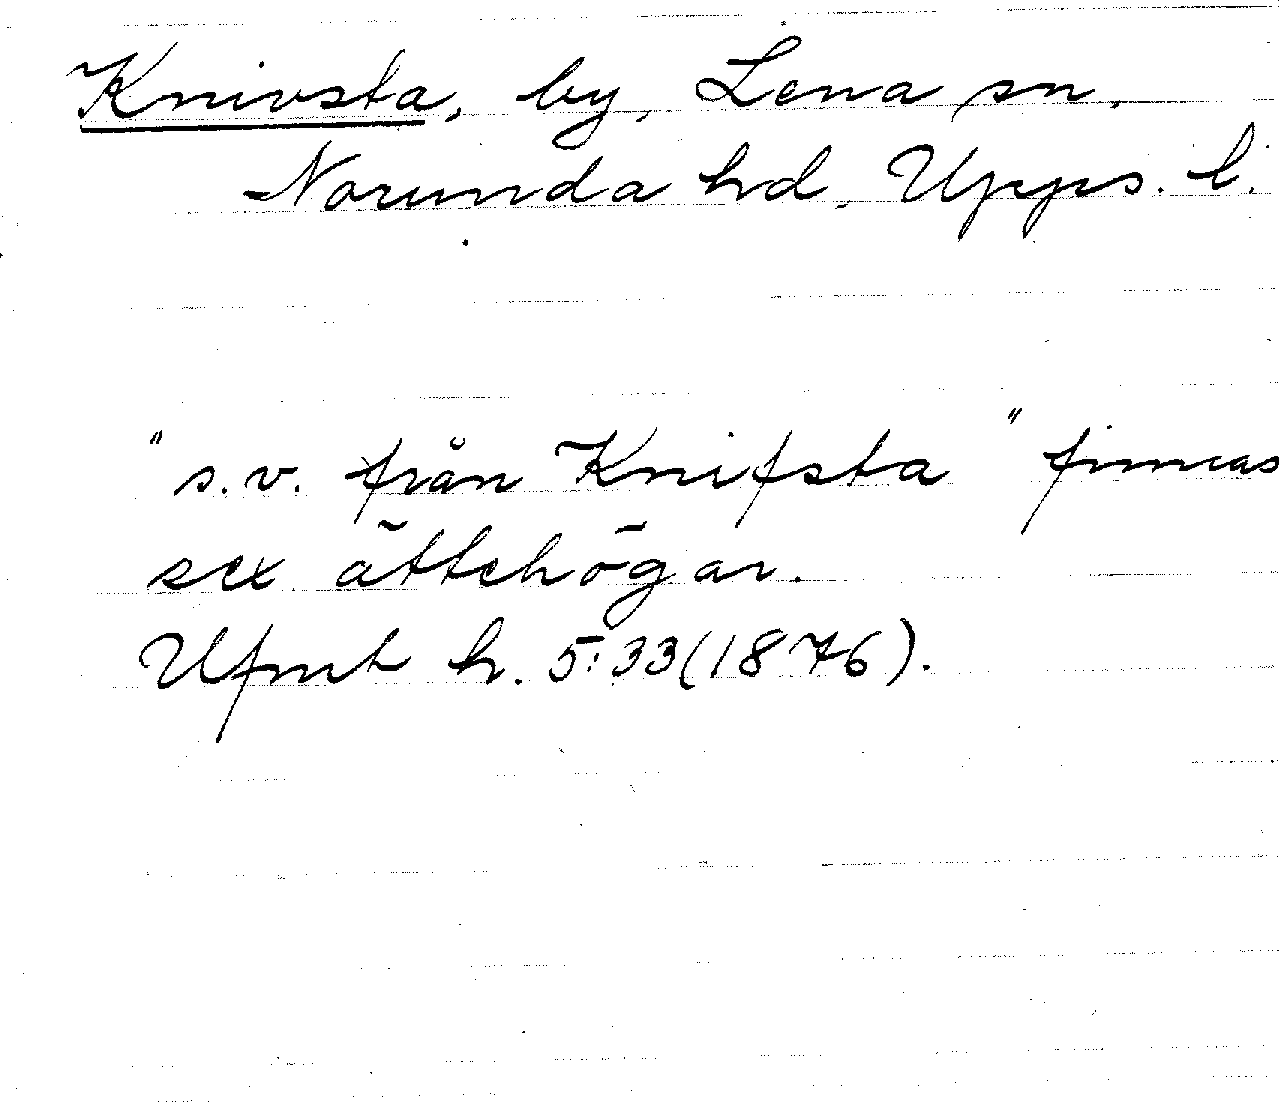 Knivsta, by, Lena sn,
Norunda hd, Upps. l.
"s.v. från Knifsta" finnas
sex ättehögar.
Ufmt h. 5:33(1876).